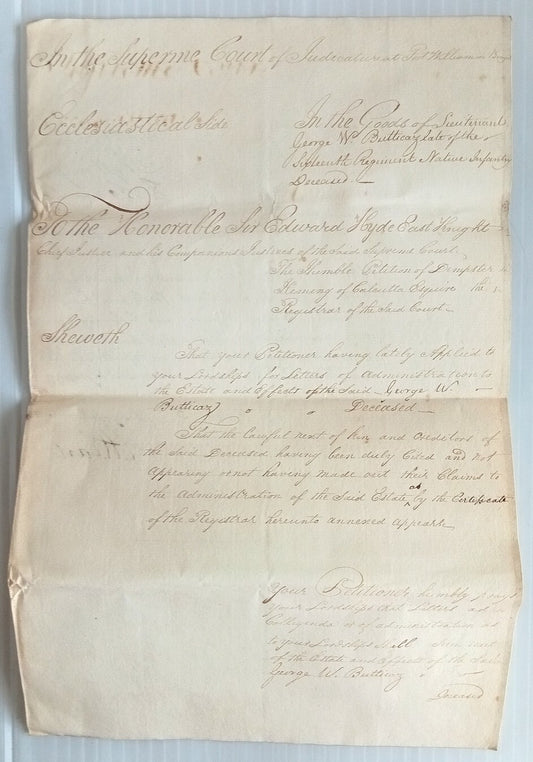 In the Supreme Court of Judicature at Fort William in
Ecclesiastical Side
In the Goods of Lieutenant
George W. Butticaz late of the
Sixteenth Regiment Native Infantry
Deceased
To the Honorable Sir Edward Hyde East Knight
Chief Justice and his Companions Justices of the Said Supreme Court
The Humble Petition of Dempster
Heming of Calcutta Esquire the
Registrar of the Said Court
Sheweth
That your Petitioner having lately Applied to
your Lordships for Letters of Administration to
the Estate and Effects of the Said George W.
Butticaz Deceased
That the Lawful next of kin and Creditors of
the Said Deceased having been duly Cited and not
appearing or not having made out their Claims to
the Administration of the Said Estate as by the Certificate
of the Registrar hereunto annexed appears
Your Petitioner humbly prays
your Lordships that Letters ad
Colligenda or of administration as
to your Lordships shall seem meet
of the Estate and Effects of the Said
George W. Butticaz
Deceased